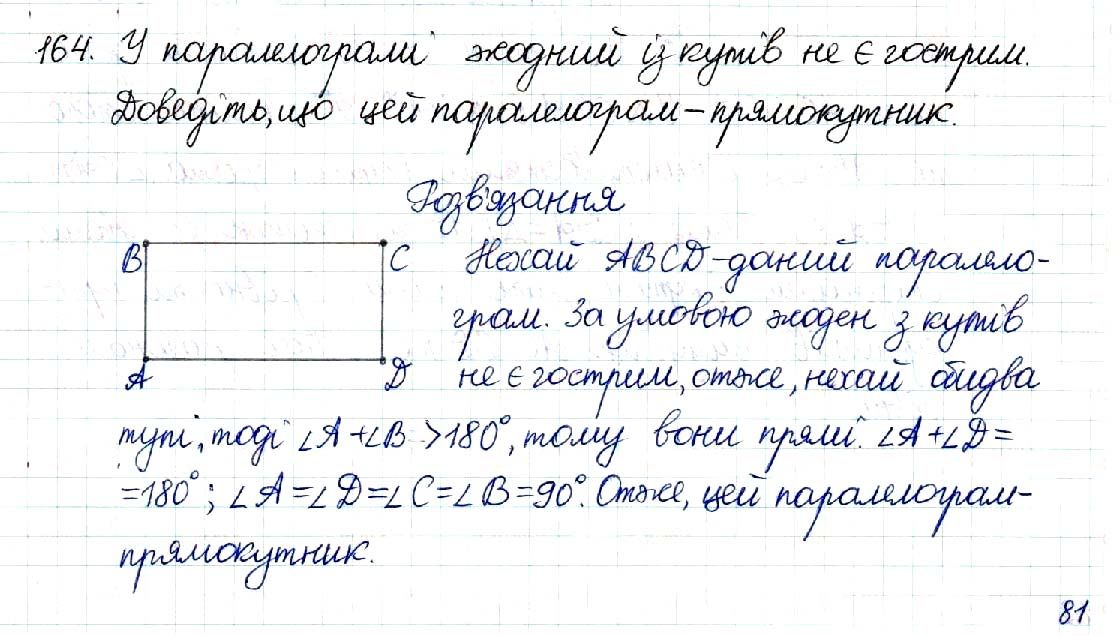 164. У паралелограмі жодний із кутів не є гострим.
Доведіть, що цей паралелограм – прямокутник.
Розв'язання
B
C
A
D
Нехай ABCD – даний паралело-
грам. За умовою жоден з кутів
не є гострим, отже, нехай обидва
тупі, тоді ∠A + ∠B > 180°, тому вони прямі. ∠A + ∠D =
= 180°; ∠A = ∠D = ∠C = ∠B = 90°. Отже, цей паралелограм –
прямокутник.
81